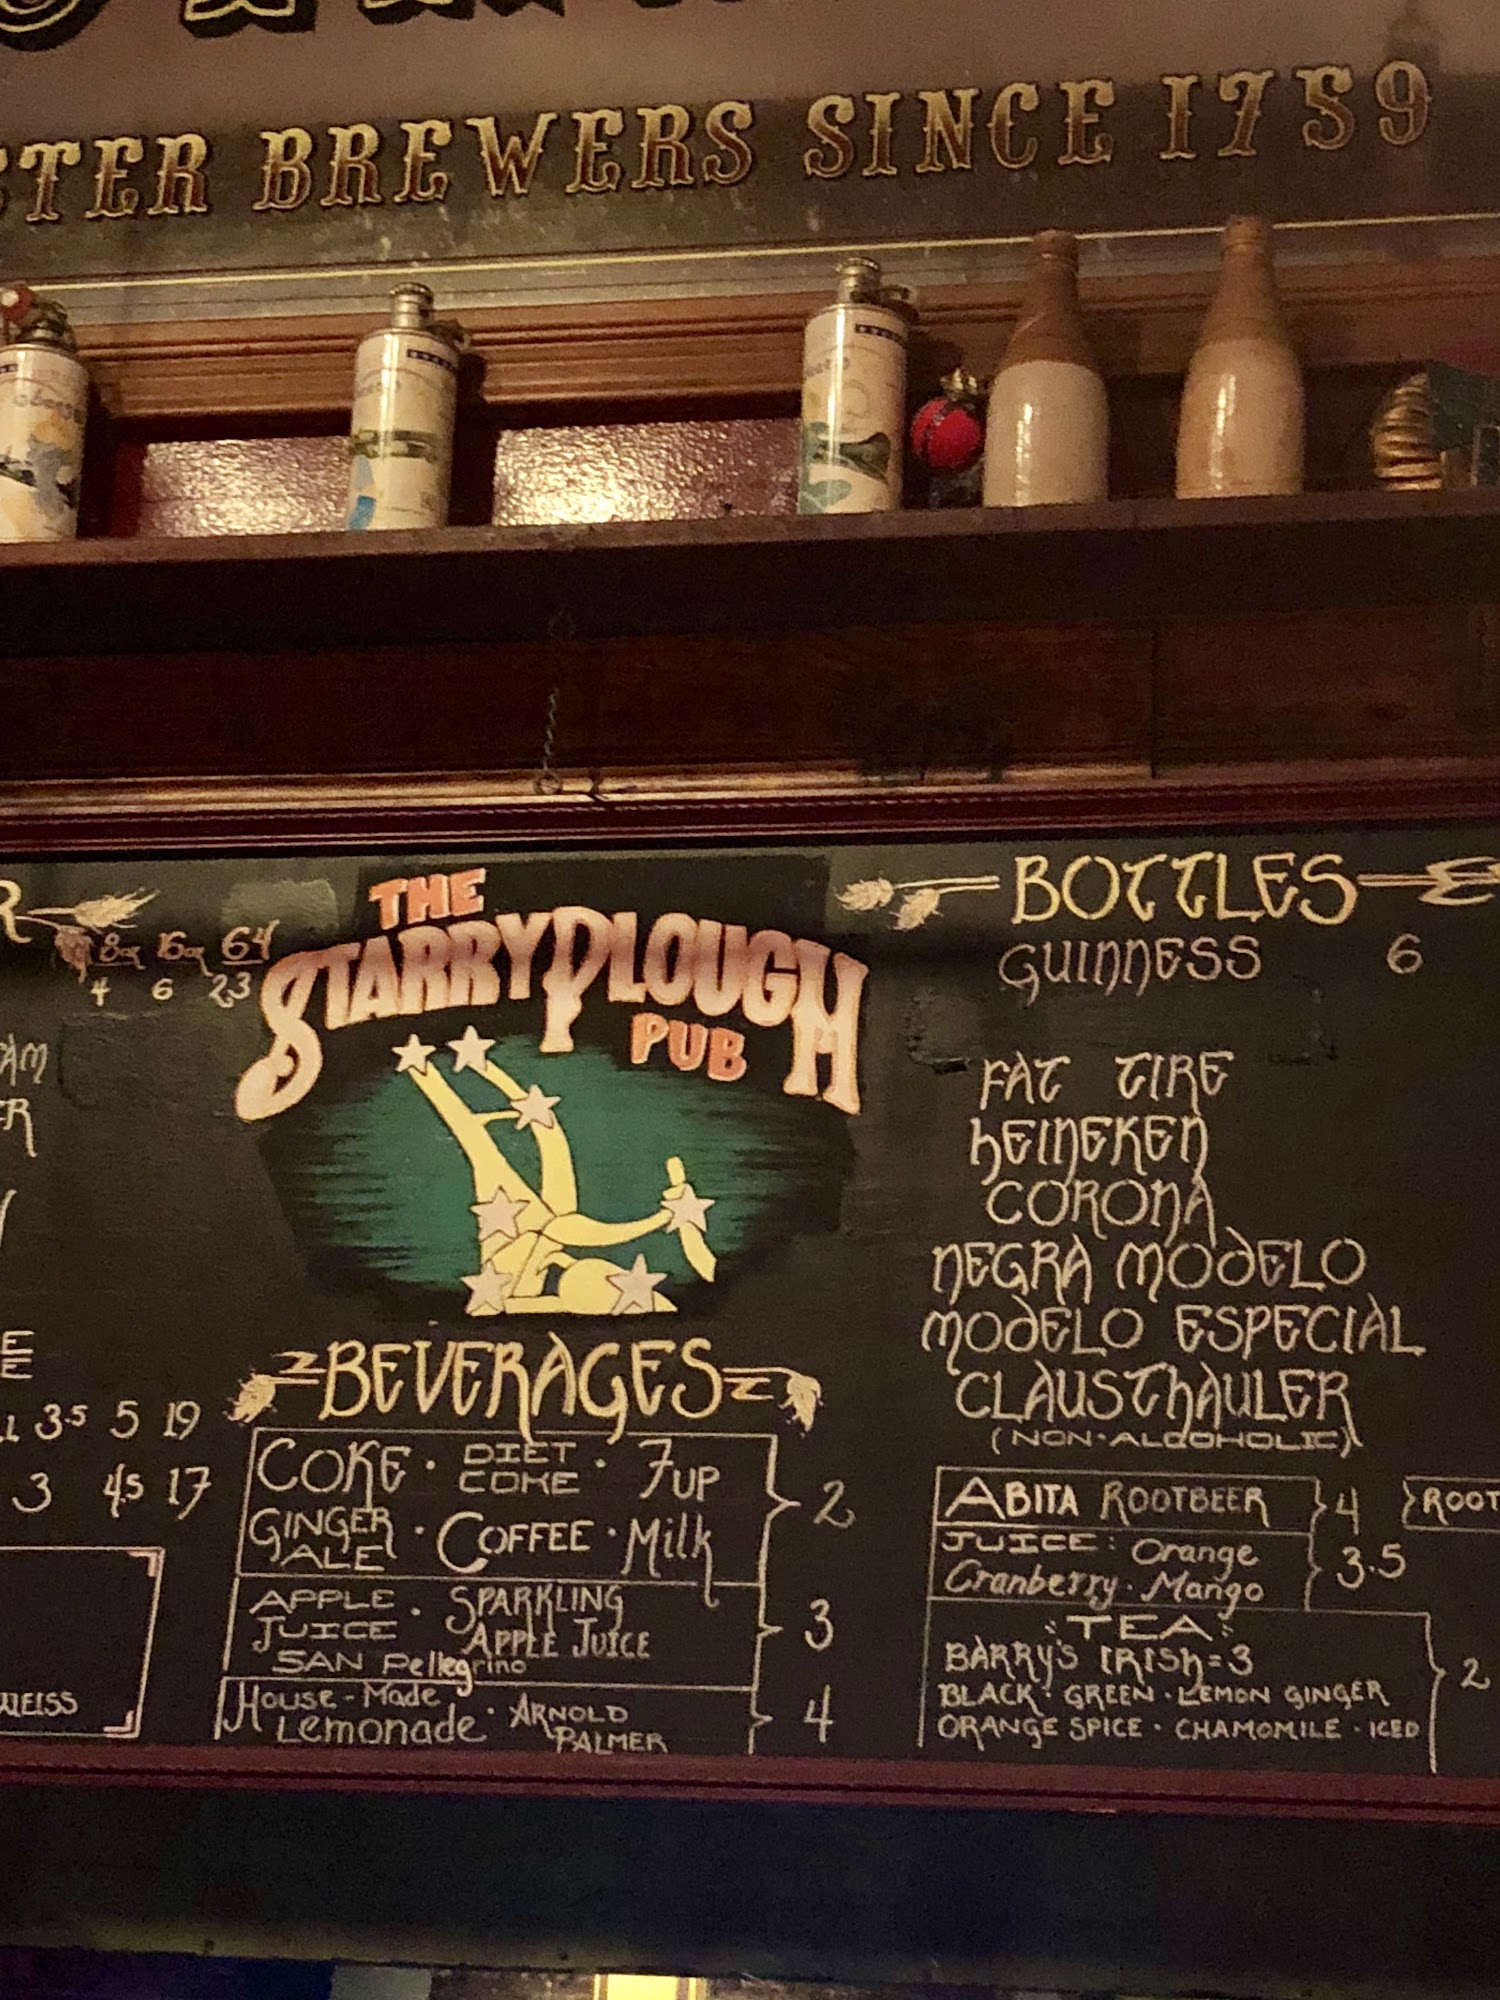 BREWERS SINCE 1759
8oz 16oz 64
4 6 23
THE
STARRY PLOUGH
PUB
BEVERAGES
COKE · DIET COKE · 7UP
GINGER ALE · COFFEE · Milk
2
APPLE JUICE · SPARKLING APPLE JUICE
SAN Pellegrino
3
House-Made Lemonade · ARNOLD PALMER
4
3.5 5 19
3 4.5 17
BOTTLES
GUINNESS 6
FAT TIRE
HEINEKEN
CORONA
NEGRA MODELO
MODELO ESPECIAL
CLAUSTHAULER
(NON-ALCOHOLIC)
ABITA ROOTBEER 4
ROOT
JUICE: Orange
Cranberry · Mango
3.5
TEA
BARRY'S IRISH = 3
BLACK · GREEN · LEMON GINGER
ORANGE SPICE · CHAMOMILE · ICED
2